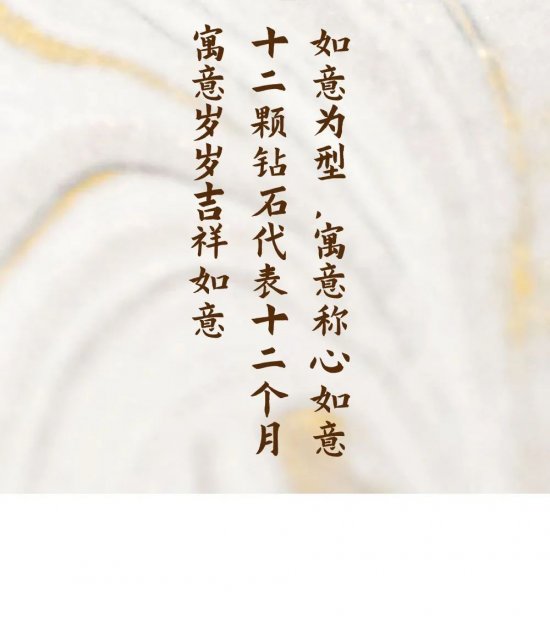 如意为型,寓意称心如意
十二颗钻石代表十二个月
寓意岁岁吉祥如意